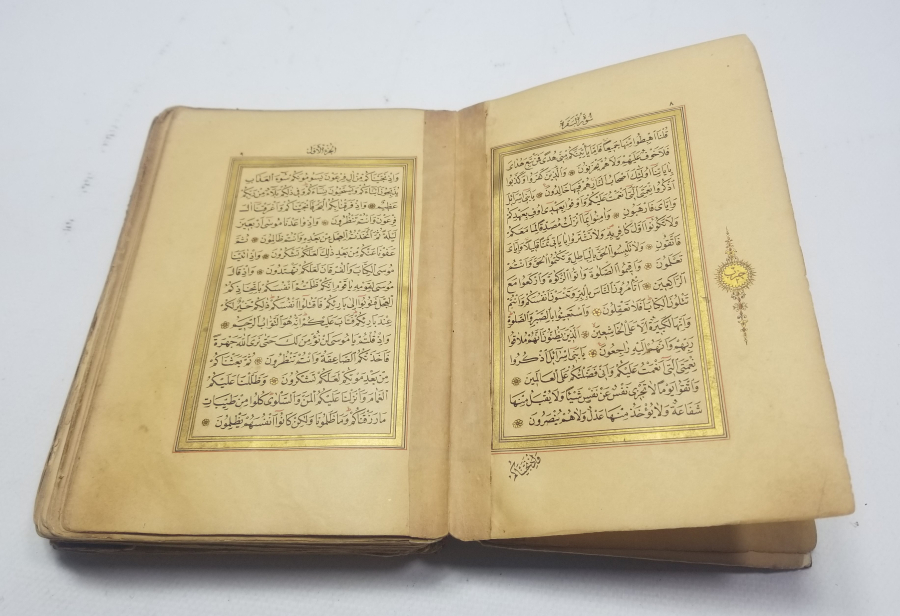 ٨
سورة البقرة
قُلْنَا اهْبِطُوا مِنْهَا جَمِيعًا فَإِمَّا يَأْتِيَنَّكُمْ مِنِّي هُدًى فَمَنْ تَبِعَ هُدَايَ
فَلَا خَوْفٌ عَلَيْهِمْ وَلَا هُمْ يَحْزَنُونَ وَالَّذِينَ كَفَرُوا وَكَذَّبُوا
بِآيَاتِنَا أُولَٰئِكَ أَصْحَابُ النَّارِ هُمْ فِيهَا خَالِدُونَ يَا بَنِي إِسْرَائِيلَ
اذْكُرُوا نِعْمَتِيَ الَّتِي أَنْعَمْتُ عَلَيْكُمْ وَأَوْفُوا بِعَهْدِي أُوفِ بِعَهْدِكُمْ
وَإِيَّايَ فَارْهَبُونِ وَآمِنُوا بِمَا أَنْزَلْتُ مُصَدِّقًا لِمَا مَعَكُمْ
وَلَا تَكُونُوا أَوَّلَ كَافِرٍ بِهِ وَلَا تَشْتَرُوا بِآيَاتِي ثَمَنًا قَلِيلًا وَإِيَّايَ
فَاتَّقُونِ وَلَا تَلْبِسُوا الْحَقَّ بِالْبَاطِلِ وَتَكْتُمُوا الْحَقَّ وَأَنْتُمْ
تَعْلَمُونَ وَأَقِيمُوا الصَّلٰوةَ وَآتُوا الزَّكٰوةَ وَارْكَعُوا مَعَ
الرَّاكِعِينَ أَتَأْمُرُونَ النَّاسَ بِالْبِرِّ وَتَنْسَوْنَ أَنْفُسَكُمْ وَأَنْتُمْ
تَتْلُونَ الْكِتَابَ أَفَلَا تَعْقِلُونَ وَاسْتَعِينُوا بِالصَّبْرِ وَالصَّلٰوةِ
وَإِنَّهَا لَكَبِيرَةٌ إِلَّا عَلَى الْخَاشِعِينَ الَّذِينَ يَظُنُّونَ أَنَّهُمْ مُلَاقُوا
رَبِّهِمْ وَأَنَّهُمْ إِلَيْهِ رَاجِعُونَ يَا بَنِي إِسْرَائِيلَ اذْكُرُوا
نِعْمَتِيَ الَّتِي أَنْعَمْتُ عَلَيْكُمْ وَأَنِّي فَضَّلْتُكُمْ عَلَى الْعَالَمِينَ
وَاتَّقُوا يَوْمًا لَا تَجْزِي نَفْسٌ عَنْ نَفْسٍ شَيْئًا وَلَا يُقْبَلُ مِنْهَا
شَفَاعَةٌ وَلَا يُؤْخَذُ مِنْهَا عَدْلٌ وَلَا هُمْ يُنْصَرُونَ
حزب
وَإِذْ نَجَّيْنَاكُمْ
الجزء الاول
وَإِذْ نَجَّيْنَاكُمْ مِنْ آلِ فِرْعَوْنَ يَسُومُونَكُمْ سُوءَ الْعَذَابِ
يُذَبِّحُونَ أَبْنَاءَكُمْ وَيَسْتَحْيُونَ نِسَاءَكُمْ وَفِي ذَٰلِكُمْ بَلَاءٌ مِنْ رَبِّكُمْ
عَظِيمٌ وَإِذْ فَرَقْنَا بِكُمُ الْبَحْرَ فَأَنْجَيْنَاكُمْ وَأَغْرَقْنَا آلَ
فِرْعَوْنَ وَأَنْتُمْ تَنْظُرُونَ وَإِذْ وَاعَدْنَا مُوسَىٰ أَرْبَعِينَ
لَيْلَةً ثُمَّ اتَّخَذْتُمُ الْعِجْلَ مِنْ بَعْدِهِ وَأَنْتُمْ ظَالِمُونَ ثُمَّ
عَفَوْنَا عَنْكُمْ مِنْ بَعْدِ ذَٰلِكَ لَعَلَّكُمْ تَشْكُرُونَ وَإِذْ آتَيْنَا
مُوسَى الْكِتَابَ وَالْفُرْقَانَ لَعَلَّكُمْ تَهْتَدُونَ وَإِذْ قَالَ
مُوسَىٰ لِقَوْمِهِ يَا قَوْمِ إِنَّكُمْ ظَلَمْتُمْ أَنْفُسَكُمْ بِاتِّخَاذِكُمُ
الْعِجْلَ فَتُوبُوا إِلَىٰ بَارِئِكُمْ فَاقْتُلُوا أَنْفُسَكُمْ ذَٰلِكُمْ خَيْرٌ لَكُمْ
عِنْدَ بَارِئِكُمْ فَتَابَ عَلَيْكُمْ إِنَّهُ هُوَ التَّوَّابُ الرَّحِيمُ
وَإِذْ قُلْتُمْ يَا مُوسَىٰ لَنْ نُؤْمِنَ لَكَ حَتَّىٰ نَرَى اللَّهَ جَهْرَةً
فَأَخَذَتْكُمُ الصَّاعِقَةُ وَأَنْتُمْ تَنْظُرُونَ ثُمَّ بَعَثْنَاكُمْ
مِنْ بَعْدِ مَوْتِكُمْ لَعَلَّكُمْ تَشْكُرُونَ وَظَلَّلْنَا عَلَيْكُمُ
الْغَمَامَ وَأَنْزَلْنَا عَلَيْكُمُ الْمَنَّ وَالسَّلْوَىٰ كُلُوا مِنْ طَيِّبَاتِ
مَا رَزَقْنَاكُمْ وَمَا ظَلَمُونَا وَلَٰكِنْ كَانُوا أَنْفُسَهُمْ يَظْلِمُونَ